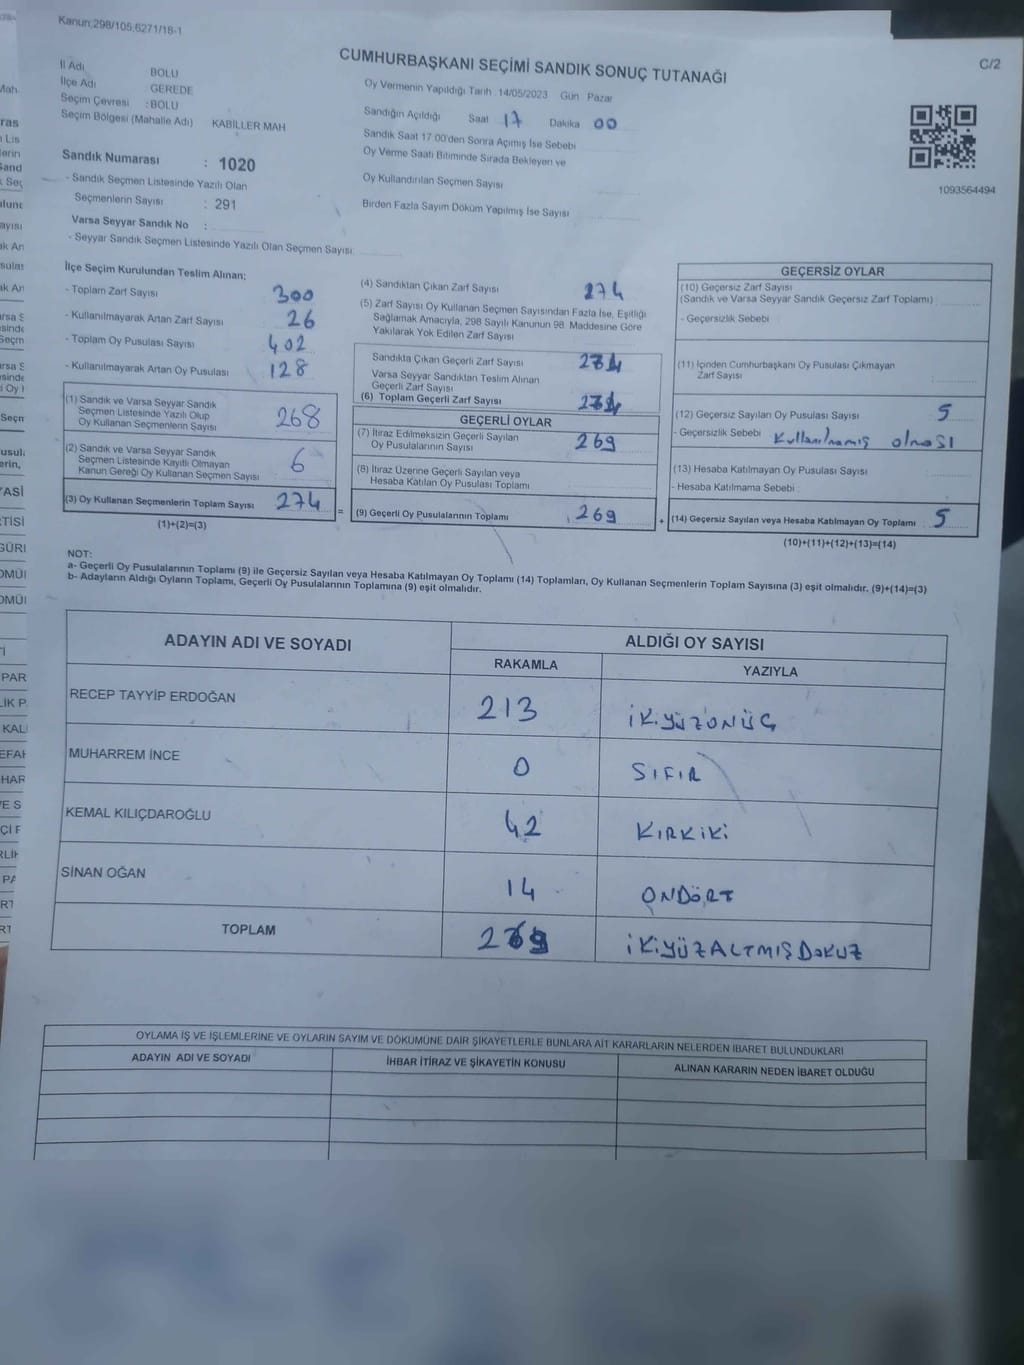 Kanun;298/105,6271/18-1
C/2
CUMHURBAŞKANI SEÇİMİ SANDIK SONUÇ TUTANAĞI
İl Adı BOLU
İlçe Adı : GEREDE
Seçim Çevresi : BOLU
Seçim Bölgesi (Mahalle Adı) KABİLLER MAH
Oy Vermenin Yapıldığı Tarih :14/05/2023 Gün Pazar
Sandığın Açıldığı Saat 17 Dakika 00
Sandık Saat 17:00'den Sonra Açımış İse Sebebi
Oy Verme Saati Bitiminde Sırada Bekleyen ve
Oy Kullandırılan Seçmen Sayısı
Birden Fazla Sayım Döküm Yapılmış İse Sayısı
1093564494
Sandık Numarası : 1020
- Sandık Seçmen Listesinde Yazılı Olan
Seçmenlerin Sayısı : 291
Varsa Seyyar Sandık No :
- Seyyar Sandık Seçmen Listesinde Yazılı Olan Seçmen Sayısı:
İlçe Seçim Kurulundan Teslim Alınan;
- Toplam Zarf Sayısı 300
- Kullanılmayarak Artan Zarf Sayısı 26
- Toplam Oy Pusulası Sayısı 402
- Kullanılmayarak Artan Oy Pusulası 128
(1) Sandık ve Varsa Seyyar Sandık
Seçmen Listesinde Yazılı Olup
Oy Kullanan Seçmenlerin Sayısı 268
(2) Sandık ve Varsa Seyyar Sandık
Seçmen Listesinde Kayıtlı Olmayan
Kanun Gereği Oy Kullanan Seçmen Sayısı 6
(3) Oy Kullanan Seçmenlerin Toplam Sayısı 274
(1)+(2)=(3)
(4) Sandıktan Çıkan Zarf Sayısı 274
(5) Zarf Sayısı Oy Kullanan Seçmen Sayısından Fazla İse, Eşitliği
Sağlamak Amacıyla, 298 Sayılı Kanunun 98. Maddesine Göre
Yakılarak Yok Edilen Zarf Sayısı
Sandıkta Çıkan Geçerli Zarf Sayısı 274
Varsa Seyyar Sandıktan Teslim Alınan
Geçerli Zarf Sayısı
(6) Toplam Geçerli Zarf Sayısı 274
GEÇERLİ OYLAR
(7) İtiraz Edilmeksizin Geçerli Sayılan
Oy Pusulalarının Sayısı 269
(8) İtiraz Üzerine Geçerli Sayılan veya
Hesaba Katılan Oy Pusulası Toplamı
= (9) Geçerli Oy Pusulalarının Toplamı 269
GEÇERSİZ OYLAR
(10) Geçersiz Zarf Sayısı
(Sandık ve Varsa Seyyar Sandık Geçersiz Zarf Toplamı)
- Geçersizlik Sebebi
(11) İçinden Cumhurbaşkanı Oy Pusulası Çıkmayan
Zarf Sayısı
(12) Geçersiz Sayılan Oy Pusulası Sayısı 5
- Geçersizlik Sebebi Kullanılmamış olması
(13) Hesaba Katılmayan Oy Pusulası Sayısı
- Hesaba Katılmama Sebebi :
+ (14) Geçersiz Sayılan veya Hesaba Katılmayan Oy Toplamı 5
(10)+(11)+(12)+(13)=(14)
NOT:
a- Geçerli Oy Pusulalarının Toplamı (9) ile Geçersiz Sayılan veya Hesaba Katılmayan Oy Toplamı (14) Toplamları, Oy Kullanan Seçmenlerin Toplam Sayısına (3) eşit olmalıdır. (9)+(14)=(3)
b- Adayların Aldığı Oyların Toplamı, Geçerli Oy Pusulalarının Toplamına (9) eşit olmalıdır.
ADAYIN ADI VE SOYADI ALDIĞI OY SAYISI
RAKAMLA YAZIYLA
RECEP TAYYİP ERDOĞAN 213 İKİYÜZONÜÇ
MUHARREM İNCE 0 SIFIR
KEMAL KILIÇDAROĞLU 42 KIRKİKİ
SİNAN OĞAN 14 ONDÖRT
TOPLAM 269 İKİYÜZALTMIŞDOKUZ
OYLAMA İŞ VE İŞLEMLERİNE VE OYLARIN SAYIM VE DÖKÜMÜNE DAİR ŞİKAYETLERLE BUNLARA AİT KARARLARIN NELERDEN İBARET BULUNDUKLARI
ADAYIN ADI VE SOYADI İHBAR İTİRAZ VE ŞİKAYETİN KONUSU ALINAN KARARIN NEDEN İBARET OLDUĞU